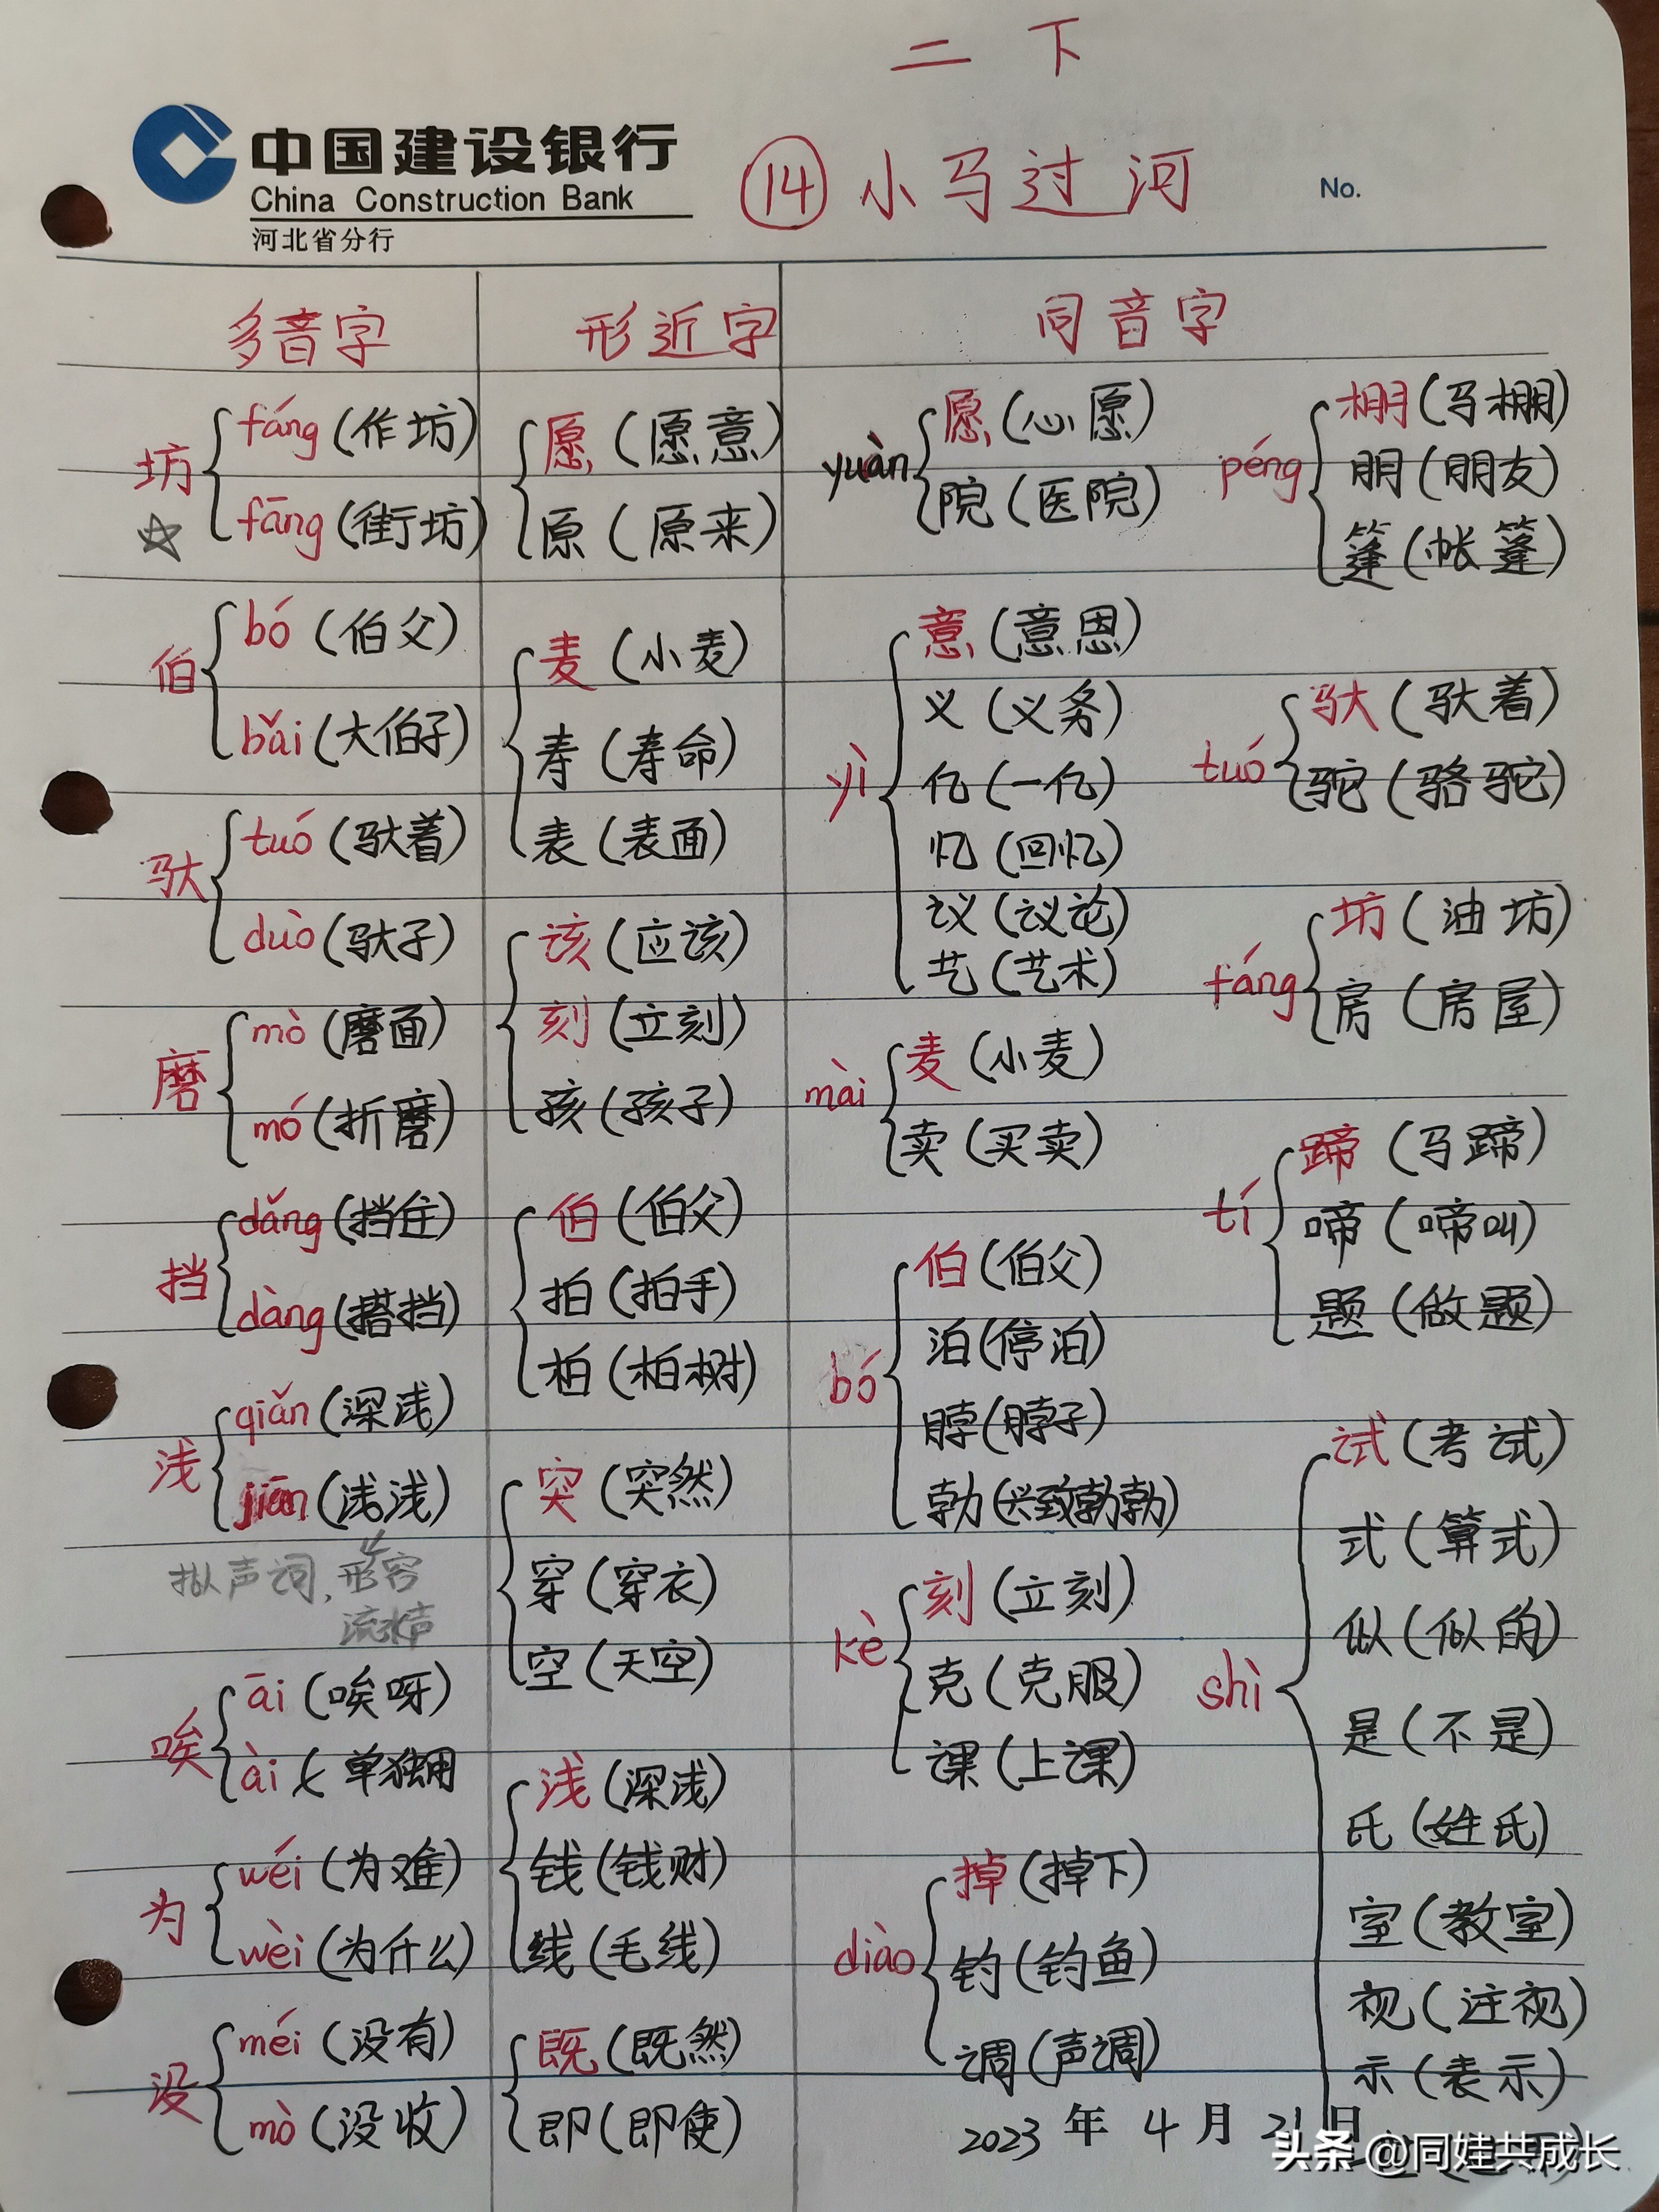 二下
中国建设银行
China Construction Bank
河北省分行
⑭小马过河
No.
多音字
坊
fáng(作坊)
fāng(街坊)
☆
伯
bó(伯父)
bǎi(大伯子)
驮
tuó(驮着)
duò(驮子)
磨
mò(磨面)
mó(折磨)
挡
dǎng(挡住)
dàng(搭挡)
浅
qiǎn(深浅)
jiān(浅浅)
拟声词,形容
流水声
唉
āi(唉呀)
ài(单独用
为
wéi(为难)
wèi(为什么)
没
méi(没有)
mò(没收)
形近字
愿(愿意)
原(原来)
麦(小麦)
寿(寿命)
表(表面)
该(应该)
刻(立刻)
孩(孩子)
伯(伯父)
拍(拍手)
柏(柏树)
突(突然)
穿(穿衣)
空(天空)
浅(深浅)
钱(钱财)
线(毛线)
既(既然)
即(即使)
同音字
yuàn
愿(心愿)
院(医院)
yì
意(意恩)
义(义务)
亿(一亿)
忆(回忆)
议(议论)
艺(艺术)
mài
麦(小麦)
卖(买卖)
bó
伯(伯父)
泊(停泊)
脖(脖子)
勃(兴致勃勃)
kè
刻(立刻)
克(克服)
课(上课)
diào
掉(掉下)
钓(钓鱼)
调(声调)
péng
棚(马棚)
朋(朋友)
篷(帐篷)
tuó
驮(驮着)
驼(骆驼)
fáng
坊(油坊)
房(房屋)
tí
蹄(马蹄)
啼(啼叫)
题(做题)
shì
试(考试)
式(算式)
似(似的)
是(不是)
氏(姓氏)
室(教室)
视(注视)
示(表示)
2023年4月21日
头条@同娃共成长